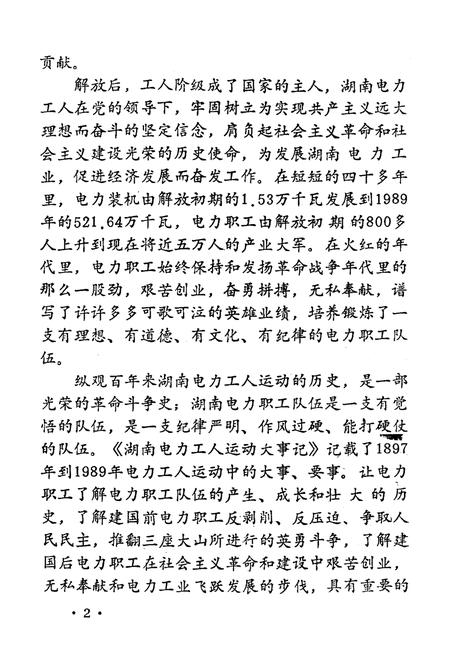 贡献。
解放后，工人阶级成了国家的主人，湖南电力
工人在党的领导下，牢固树立为实现共产主义远大
理想而奋斗的坚定信念，肩负起社会主义革命和社
会主义建设光荣的历史使命，为发展湖南电力工
业，促进经济发展而奋发工作。在短短的四十多年
里，电力装机由解放初期的1.53万千瓦发展到1989
年的521.64万千瓦，电力职工由解放初期的800多
人上升到现在将近五万人的产业大军。在火红的年
代里，电力职工始终保持和发扬革命战争年代里的
那么一股劲，艰苦创业，奋勇拼搏，无私奉献，谱
写了许许多多可歌可泣的英雄业绩，培养锻炼了一
支有理想、有道德、有文化、有纪律的电力职工队
伍。
纵观百年来湖南电力工人运动的历史，是一部
光荣的革命斗争史；湖南电力职工队伍是一支有觉
悟的队伍，是一支纪律严明、作风过硬、能打硬仗
的队伍。《湖南电力工人运动大事记》记载了1897
年到1989年电力工人运动中的大事、要事。让电力
职工了解电力职工队伍的产生、成长和壮大的历
史，了解建国前电力职工反剥削、反压迫、争取人
民民主，推翻三座大山所进行的英勇斗争，了解建
国后电力职工在社会主义革命和建设中艰苦创业，
无私奉献和电力工业飞跃发展的步伐，具有重要的
·2·